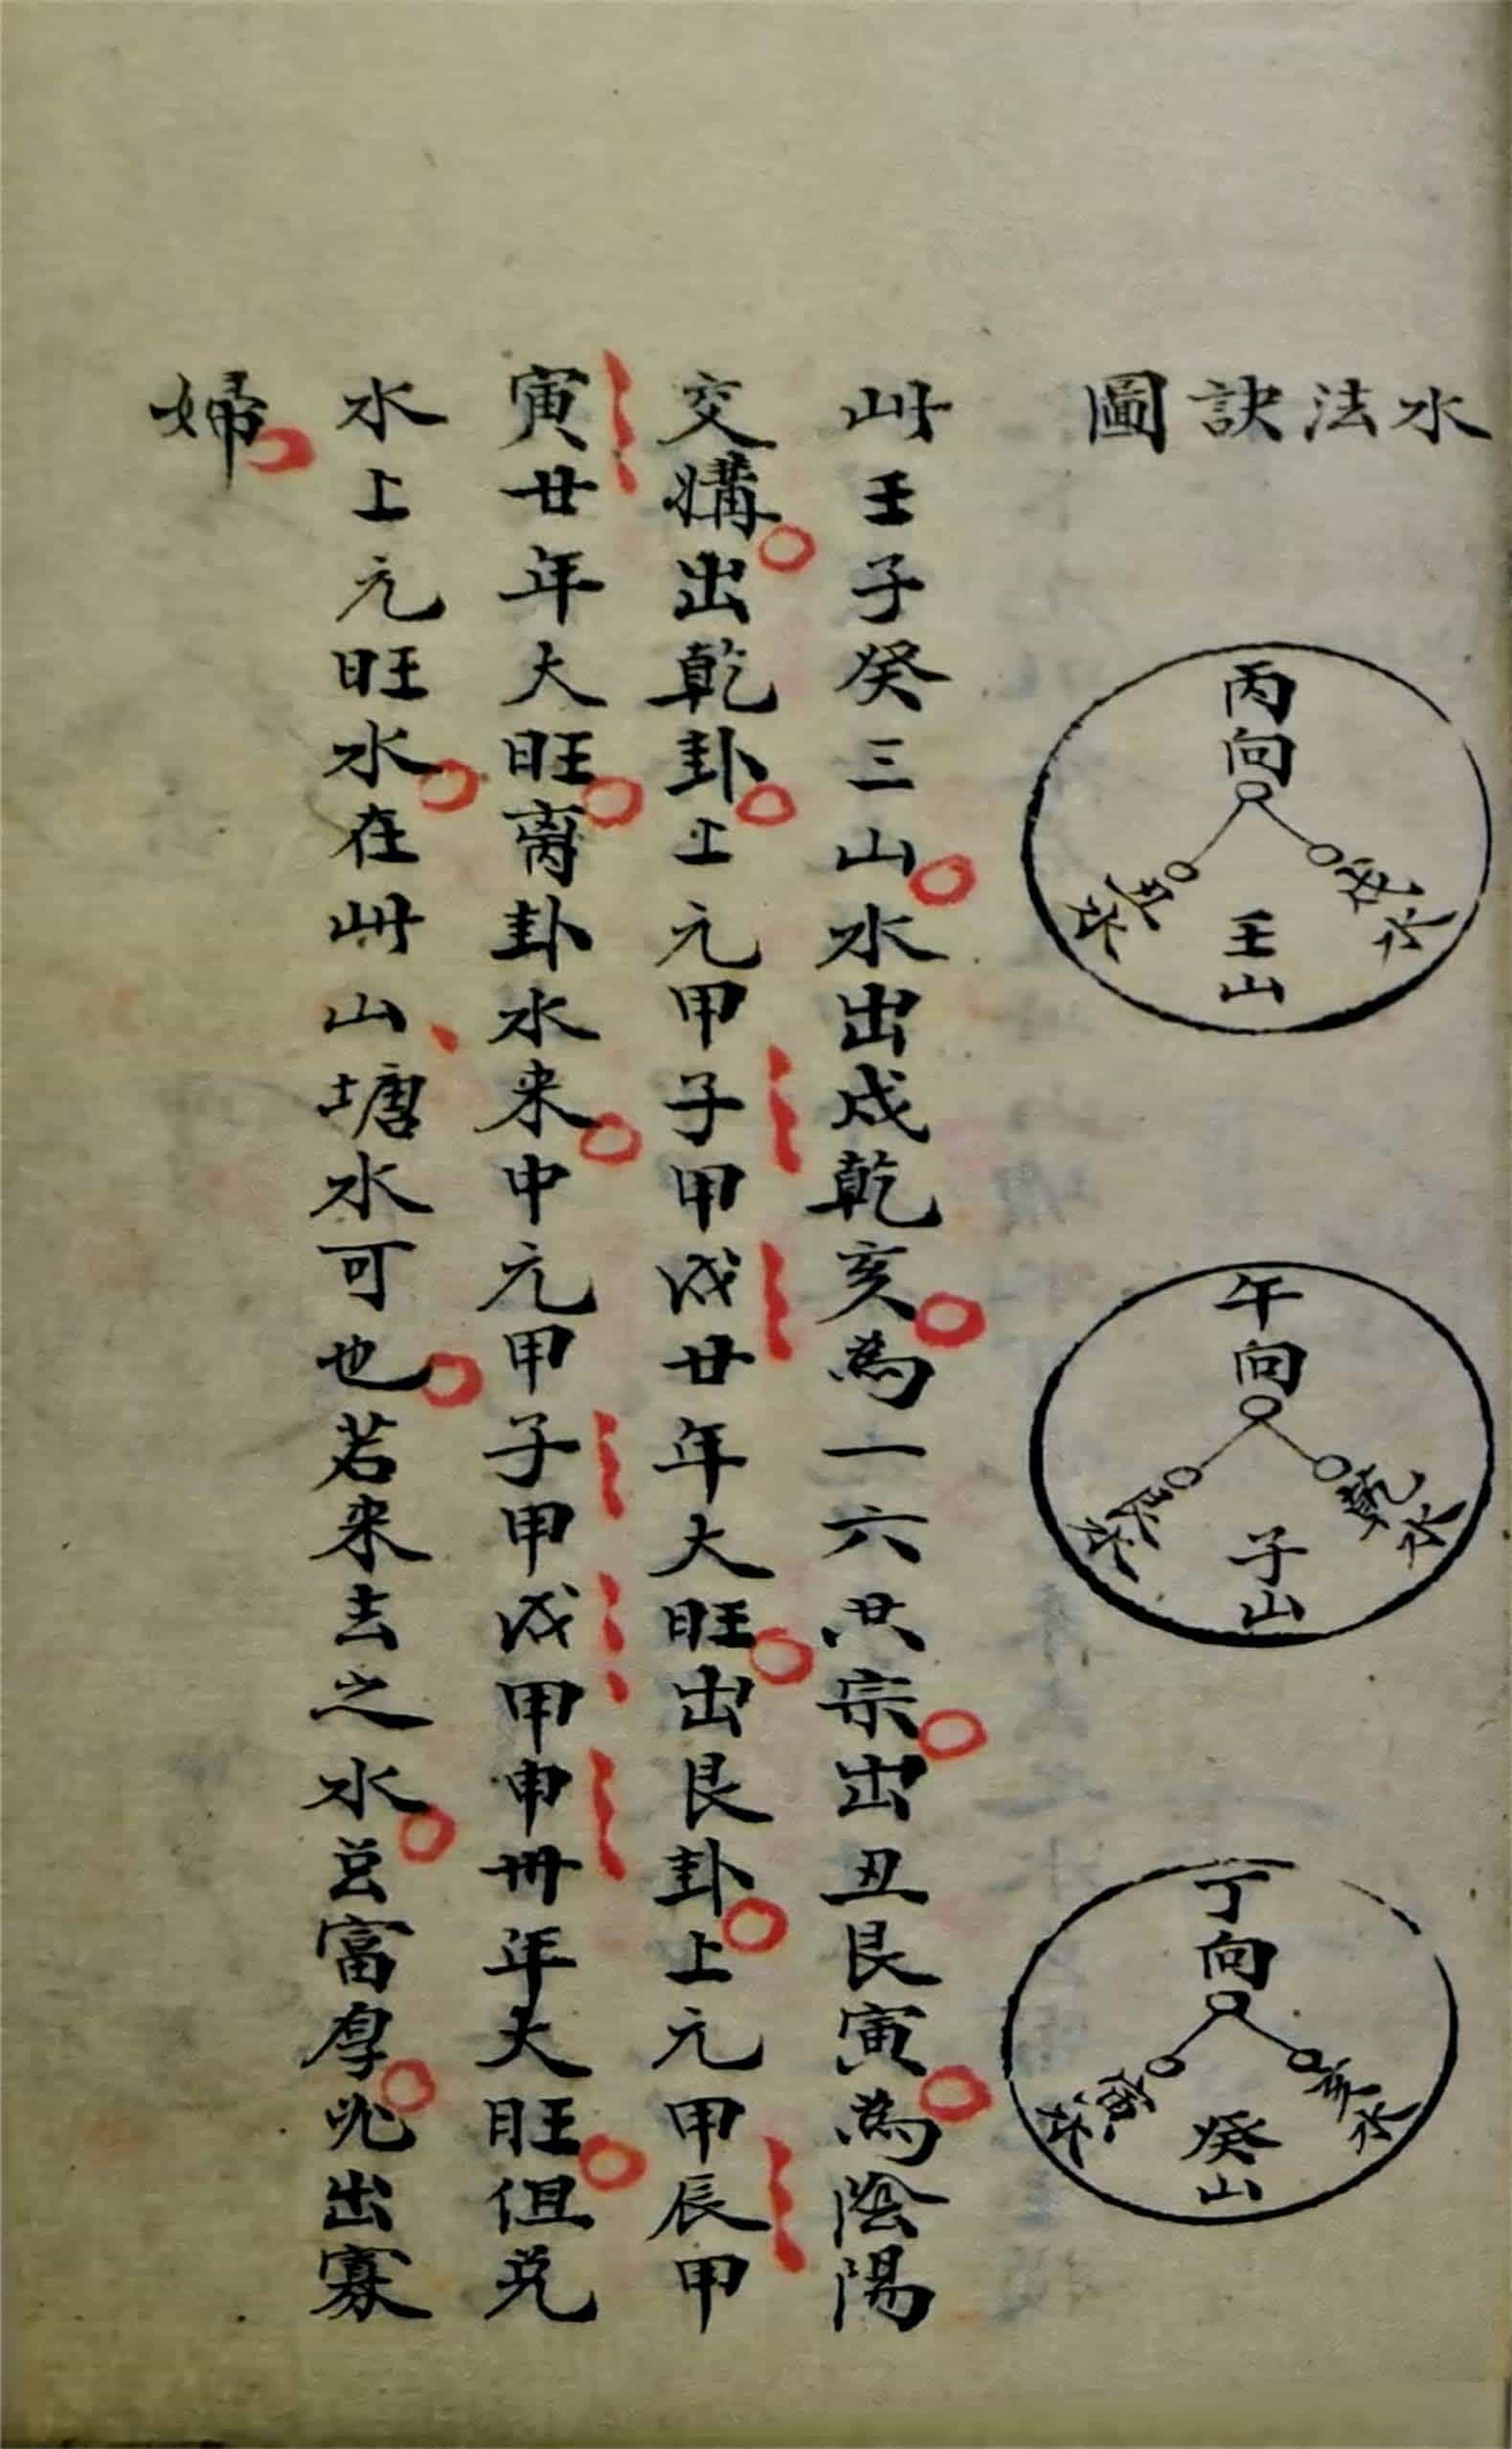 水法訣圖
丙向
戌水
丑水
壬山
午向
乾水
艮水
子山
丁向
亥水
寅水
癸山
此壬子癸三山水出戌乾亥為一六共宗出丑艮寅為陰陽
交媾出乾卦上元甲子甲戌廿年大旺出艮卦上元甲辰甲
寅廿年大旺离卦水来中元甲子甲戌甲申卅年大旺但兑
水上元旺水在此山塘水可也若来去之水豈富厚必出寡
婦